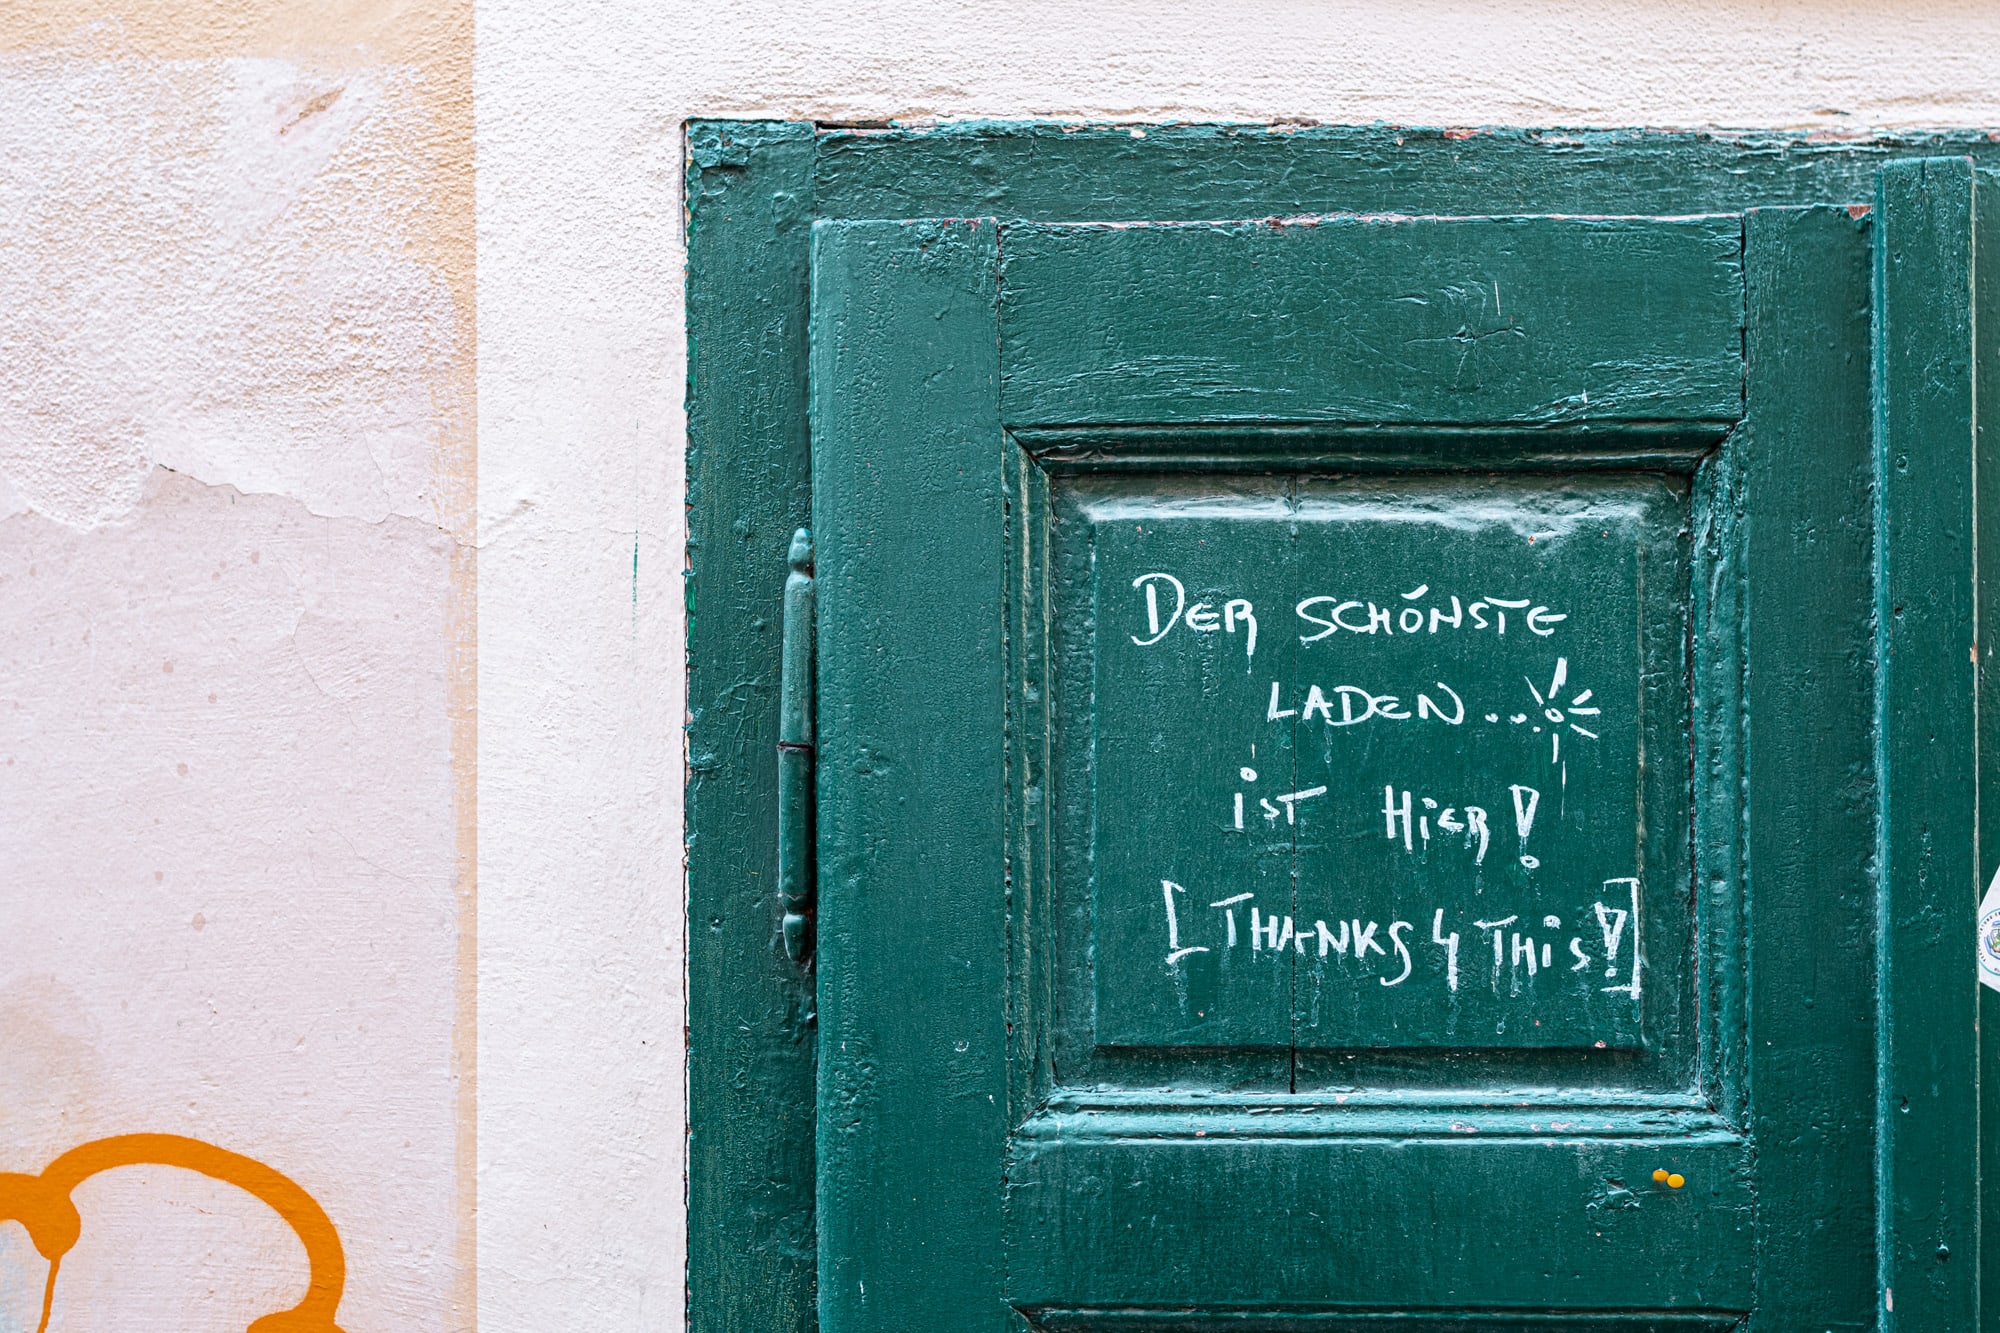 DER SCHÓNSTE
LADEN...
iST HiER!
[THANKS 4 THiS!]